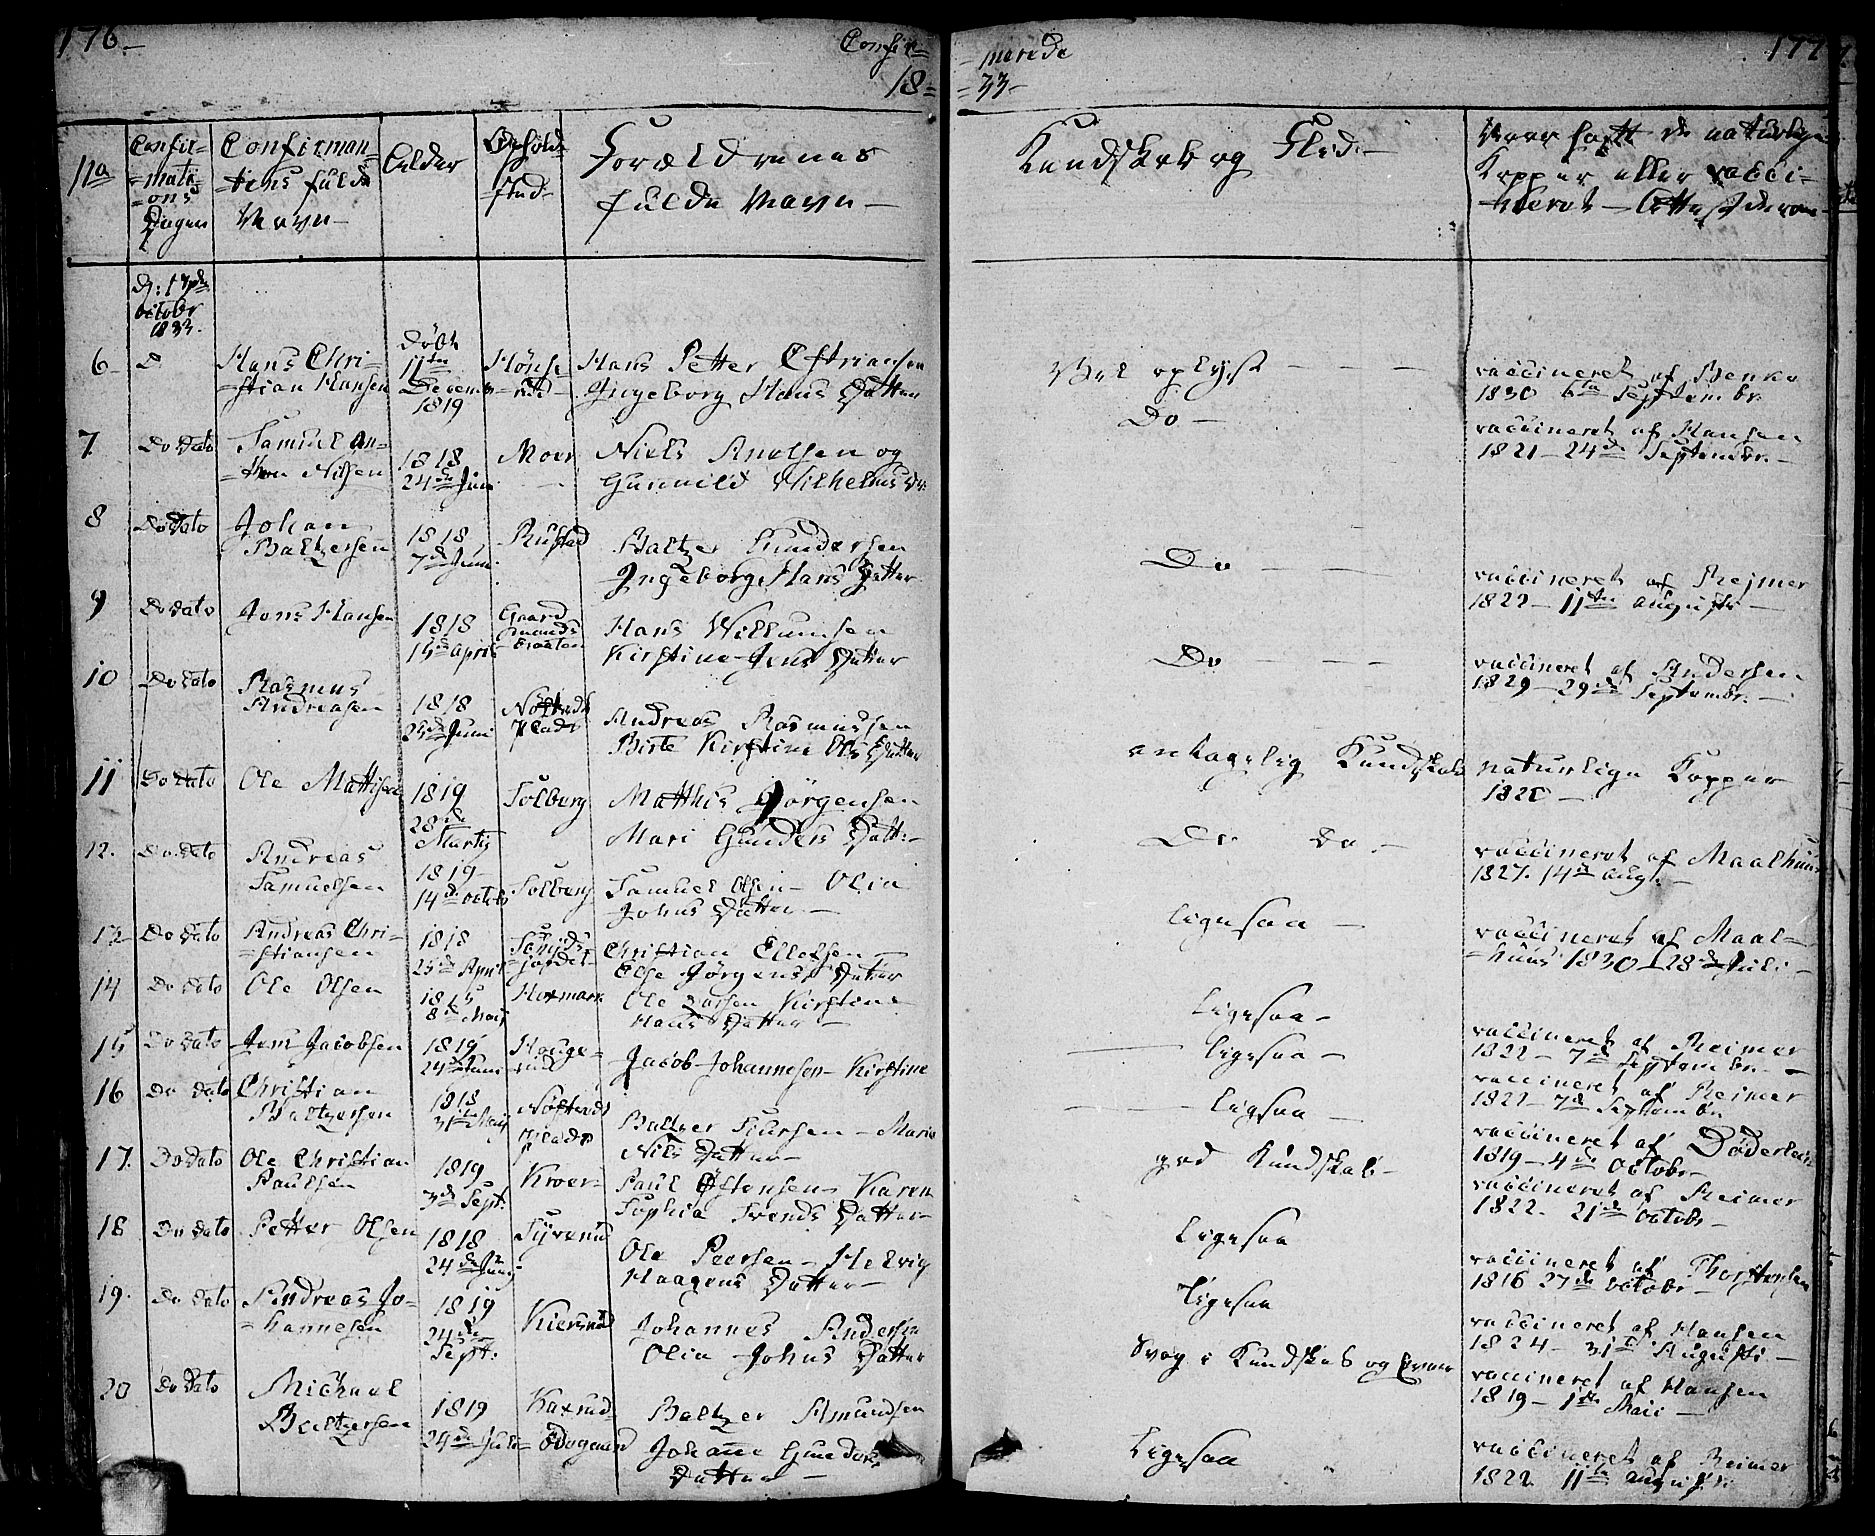 176-
Confir=
18=
No
Confir=
=mati=
=ons
Dagen
Confirman=
=tens fulde
Navn-
Alder
Opholds
sted-
Forældrenes
fulde Navn-
d: 17de
octobr
1833.
6- D Hans Chri= døbt Hans Petter
=stian Hansen 11te Decembr 1819 Ingeborg Hans Datter
7. Do Dato Samuel An= 1818 Moer Niels Anelsen og
=thon Nilsen 24de Juni Gunnild Vilhelms Dr:
8 Do Dato Johan 1818 Rustad Baltzer Gundersen
Baltzersen 7de Juni Ingeborg Hans Datter
9 Do Dato Jens Hansen 1818 Gaard Hans Willumsen
April Kirstine Jens Datter
10 Do Dato Rasmus 1818 Andreas Rasmussen
Andreasen 25de Juni Plads Birte Kirstine Ols Datter
11 Do Dato Ole Mattisen 1819 Solberg Matthis Jörgensen
28de Martij Mari Gunders Datt:-
12. Do Dato Andreas 1819-
Samuelsen 14de octob Solberg Samuel Olsen- Olia
Johns Datter-
13 Do Dato Andreas Chri= 1818 Christian Ellefsen-
=stiansen 25de April Else Jörgens Datter
14 Do Dato Ole Olsen 1815 Ole Larsen Kirstine
8de Maij Hans Datter-
15 Do Dato Jens Jacobsen 1819 Houge=
24de Juni =rud Jacob Johannesen- Kirstine
16 Do Dato Christian 1818
Baltzersen 31te Maij Plads Baltzer- Maria
Nils Datter-
17. Do Dato Ole Christian 1819 Kroer-
Paulsen 3de Sept: Paul Östensen- Karen
Sophia Svends Datter-
18 Do Dato Petter Olsen 1818 Syverud
24de Junij Ole Peersen- Helvig
Haagens Datter-
19. Do Dato Andreas Jo= 1819
=hannesen 24de Sept: Kierrud Johannes Andersen
Olia Johns Datter
20 Do Dato Michael 1819 Kaxrud-
Baltzersen 24de Juli Ödegaard Baltzer Amundsen
Johanne Gunders
Datter-
-merede
=33-
177
Kundskab og Flid-
Naar haft de naturlige
Kopper eller vacci=
=neret- Attest derom
Vel oplyst - - - - vaccineret af Benko
1830 6te Septembr.
Do- vaccineret af Hansen
1821- 24de Septembr.-
Do - - - vaccineret af Reimer
1822- 11te Augusti-
Do - - - vaccineret af Andersen
1829- 29de Septembr.-
antagelig Kundskab naturlige Kopper
1820-
Do Do.- vaccineret af Maalhuus
1827. 14de Augt.-
ligesaa- vaccineret af Maal=
=huus 1830- 28de Juli-
ligesaa- vaccineret af Reimer
1822- 7de Septembr.-
ligesaa- vaccineret af Reimer
1822- 7de Septembr.
ligesaa- vaccineret af Döderlein
1819- 4de October-
god Kundskab- vaccineret af Reimer
1822. 21de Octobr-
ligesaa vaccineret af Thorstensen
1816 27de October-
ligesaa vaccineret af Hansen
1824- 31te Augusti-
Svag i Kundskab og vaccineret af Hansen
1819- 1te Maii-
ligesaa vaccineret af Reimer
1822 11te Augusti